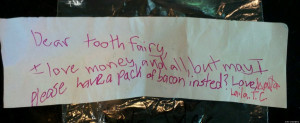 Dear tooth fairy,
I love money, and all but may I
Please have a pack of bacon insted? Love,